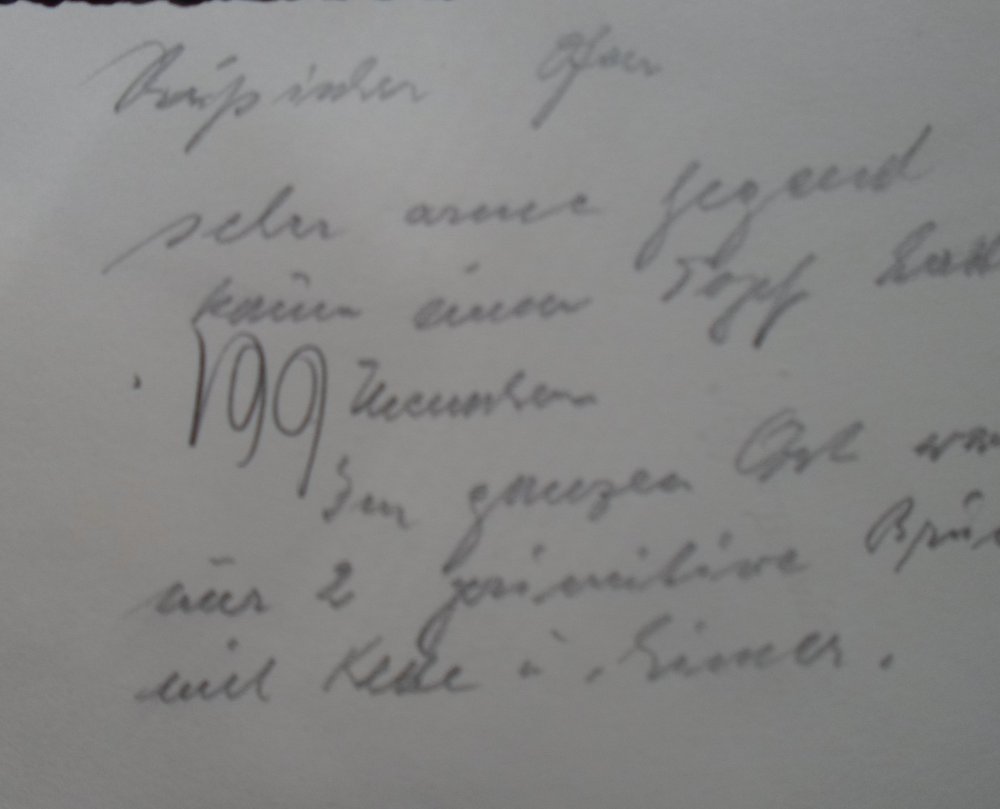 Rußischer Ofen
sehr arme Gegend
kaum einen Topf hatt
199 Menschen
Im ganzen Ort war
nur 2 primitive
mit Kette u. Eimer.